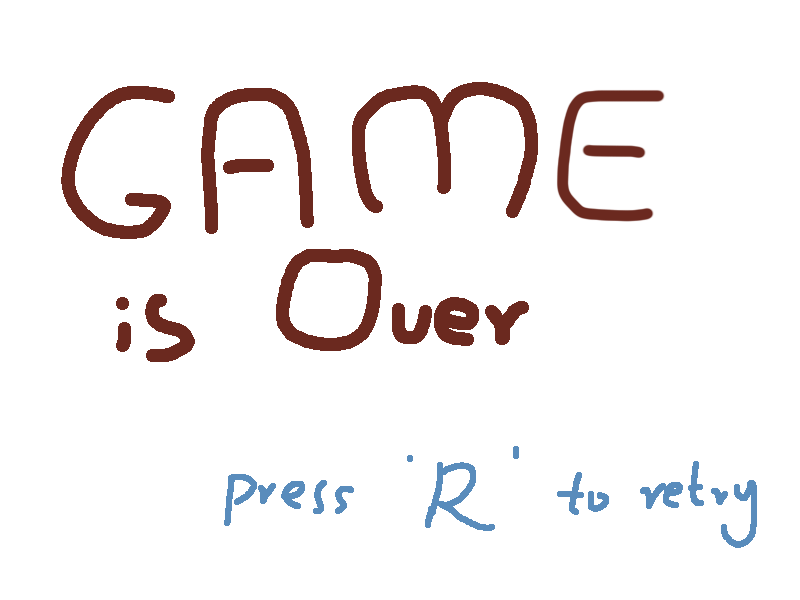 GAME
is Over
press 'R' to retry